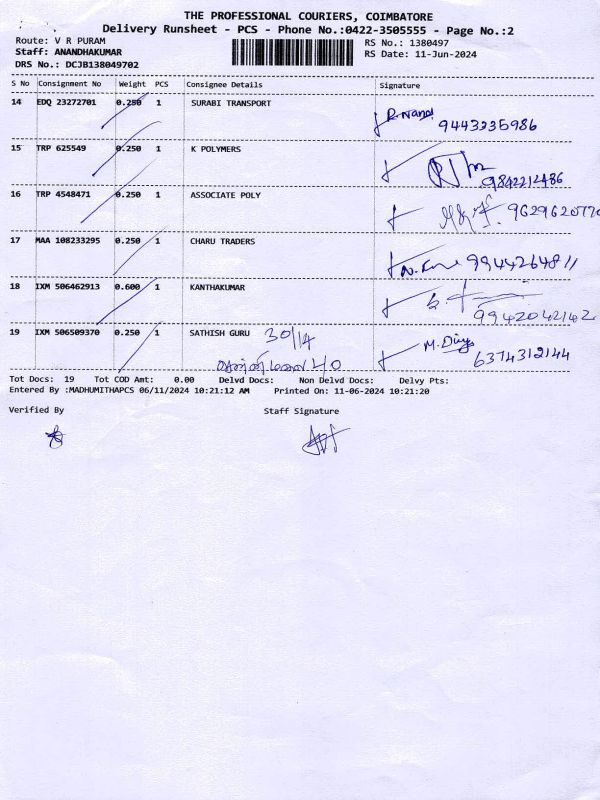 THE PROFESSIONAL COURIERS, COIMBATORE
Delivery Runsheet - PCS - Phone No.:0422-3505555 - Page No.:2
Route: V R PURAM
RS No.: 1380497
Staff: ANANDHAKUMAR
RS Date: 11-Jun-2024
DRS No.: DCJB138049702
S No Consignment No Weight PCS Consignee Details Signature
14 EDQ 23272701 0.250 1 SURABI TRANSPORT
R. Nandi
9443235986
15 TRP 625549 0.250 1 K POLYMERS
9842212486
16 TRP 4548471 0.250 1 ASSOCIATE POLY
9629620770
17 MAA 108233295 0.250 1 CHARU TRADERS
9944264811
18 IXM 506462913 0.600 1 KANTHAKUMAR
9942042142
19 IXM 506509370 0.250 1 SATHISH GURU 30/14
M. Divya
6374312144
Tot Docs: 19 Tot COD Amt: 0.00 Delvd Docs: Non Delvd Docs: Delvy Pts:
Entered By :MADHUMITHAPCS 06/11/2024 10:21:12 AM Printed On: 11-06-2024 10:21:20
Verified By Staff Signature